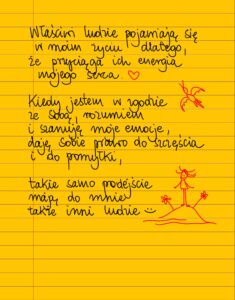 Właściwi ludzie pojawiają się
w moim życiu dlatego,
że przyciąga ich energia
mojego serca.
Kiedy jestem w zgodzie
ze sobą, rozumiem
i szanuję moje emocje,
daję sobie prawo do szczęścia
i do pomyłki,
takie samo podejście
mają do mnie
także inni ludzie